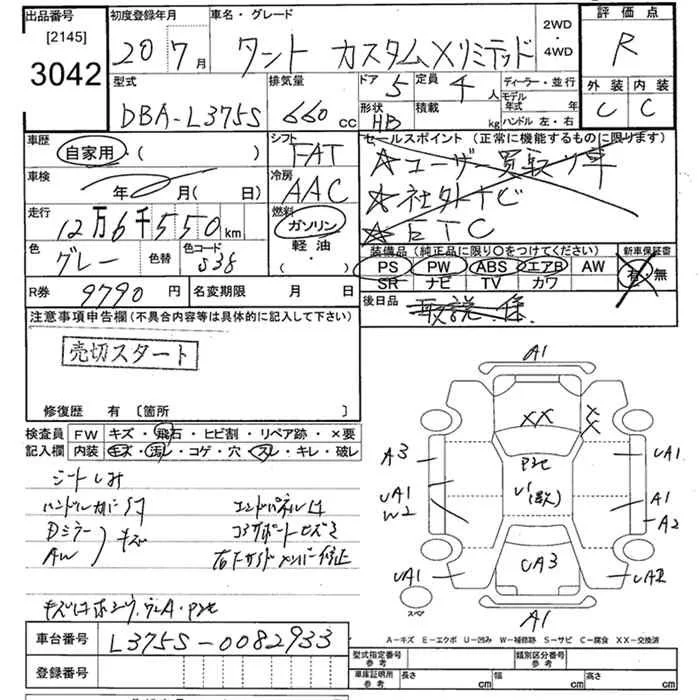 出品番号
[2145]
3042
初度登録年月
20 7月
車名・グレード
タント カスタムXリミテッド
2WD
・
4WD
評価点
R
外装 内装
C C
型式
DBA-L375S
排気量
660 cc
ドア 5
定員 4 人
形状 HB
積載 kg
ディーラー・並行
モデル年式 年
ハンドル 左・右
車歴
自家用・( )
シフト
FAT
セールスポイント (正常に機能するものに限ります)
☆ユーザー買取リ車
☆社外ナビ
☆ETC
車検
年 月( 日)
冷房
AAC
走行
12万6千550 km
燃料
ガソリン
軽油
( ・ )
色
グレー
色替
色コード
S38
装備品 (純正品に限り○をつけてください)
PS PW ABS エアB AW
SR ナビ TV カワ
新車保証書
有・無
R券 9790 円
名変期限 月 日
後日品
取説
注意事項申告欄 (不具合内容等は具体的に記入して下さい)
売切スタート
修復歴 有 〔箇所 〕
検査員 FW キズ・飛石・ヒビ割・リペア跡・×要
記入欄 内装 キズ・汚レ・コゲ・穴・スレ・キレ・破レ
シートしみ
ハンドルカバースレ
Dミラー
AW
キズ
エンドパネルけ
コアサポートヒズミ
右下サイドメンバー修正
A1
XX
X
X
A3
P2セ
UA1
UA1
W2
A1
A2
UA3
UA1
UA2
A1
スペア
車台番号 L375S-0082933
登録番号
A−キズ E−エクボ U−凹み W−補修跡 S−サビ C−腐食 XX−交換済
型式指定番号
参考
類別区分番号
参考
車庫証明用
参考
長さ cm
幅 cm
高さ cm